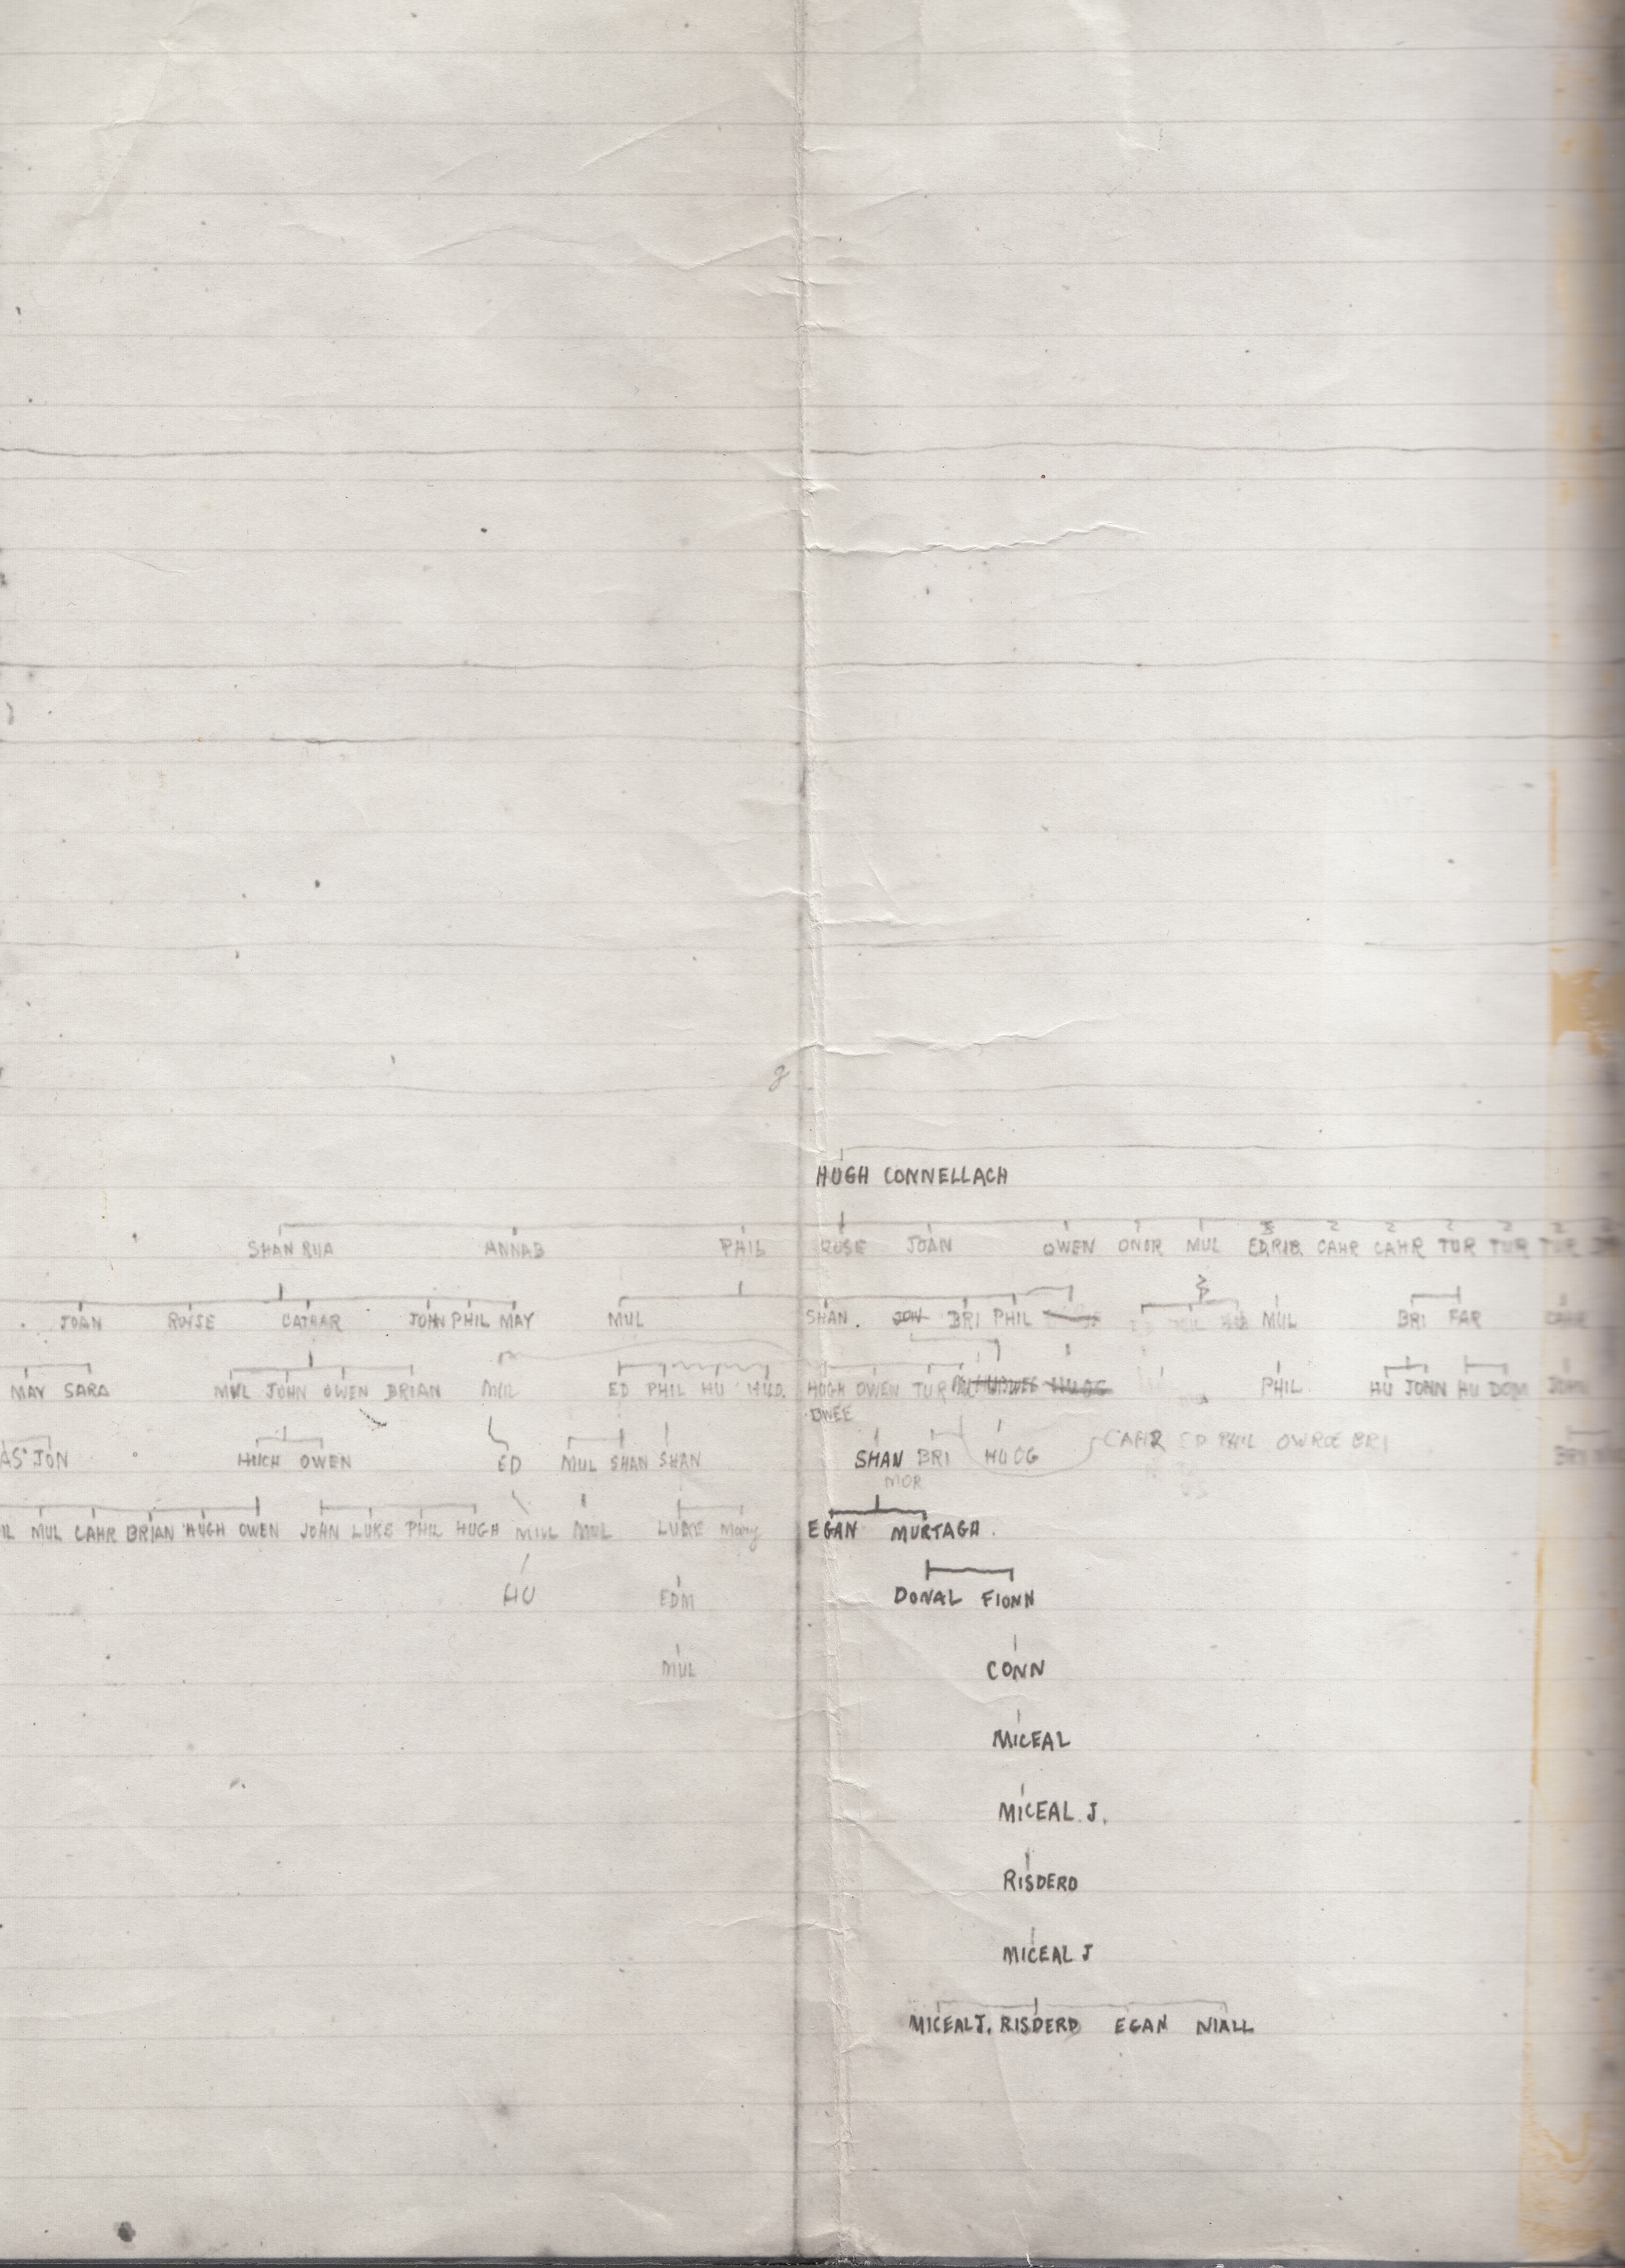 HUGH CONNELLACH
SHAN RUA ANNAB PHIL ROSE JOAN OWEN ONOR MUL CAHR CAHR TUR TUR TUR
JOAN ROISE CATHAR JOHN PHIL MAY MUL SHAN. JOH BRI PHIL MUL BRI FAR
MAY SARA MUL JOHN OWEN BRIAN MUL ED PHIL HU HUO. HUGH OWEN TUR PHIL HU JOHN HU DOM JOHN
BWEE
JON HUGH OWEN ED MUL SHAN SHAN SHAN BRI HUOG CAHR ED PHIL OWROE BRI BRI
MOR
MUL CAHR BRIAN HUGH OWEN JOHN LUKE PHIL HUGH MUL MUL LUKE Mary EGAN MURTAGH.
HU EDM DONAL FIONN
MUL CONN
MICEAL
MICEAL J.
RISDERD
MICEAL J
MICEAL J. RISDERD EGAN NIALL